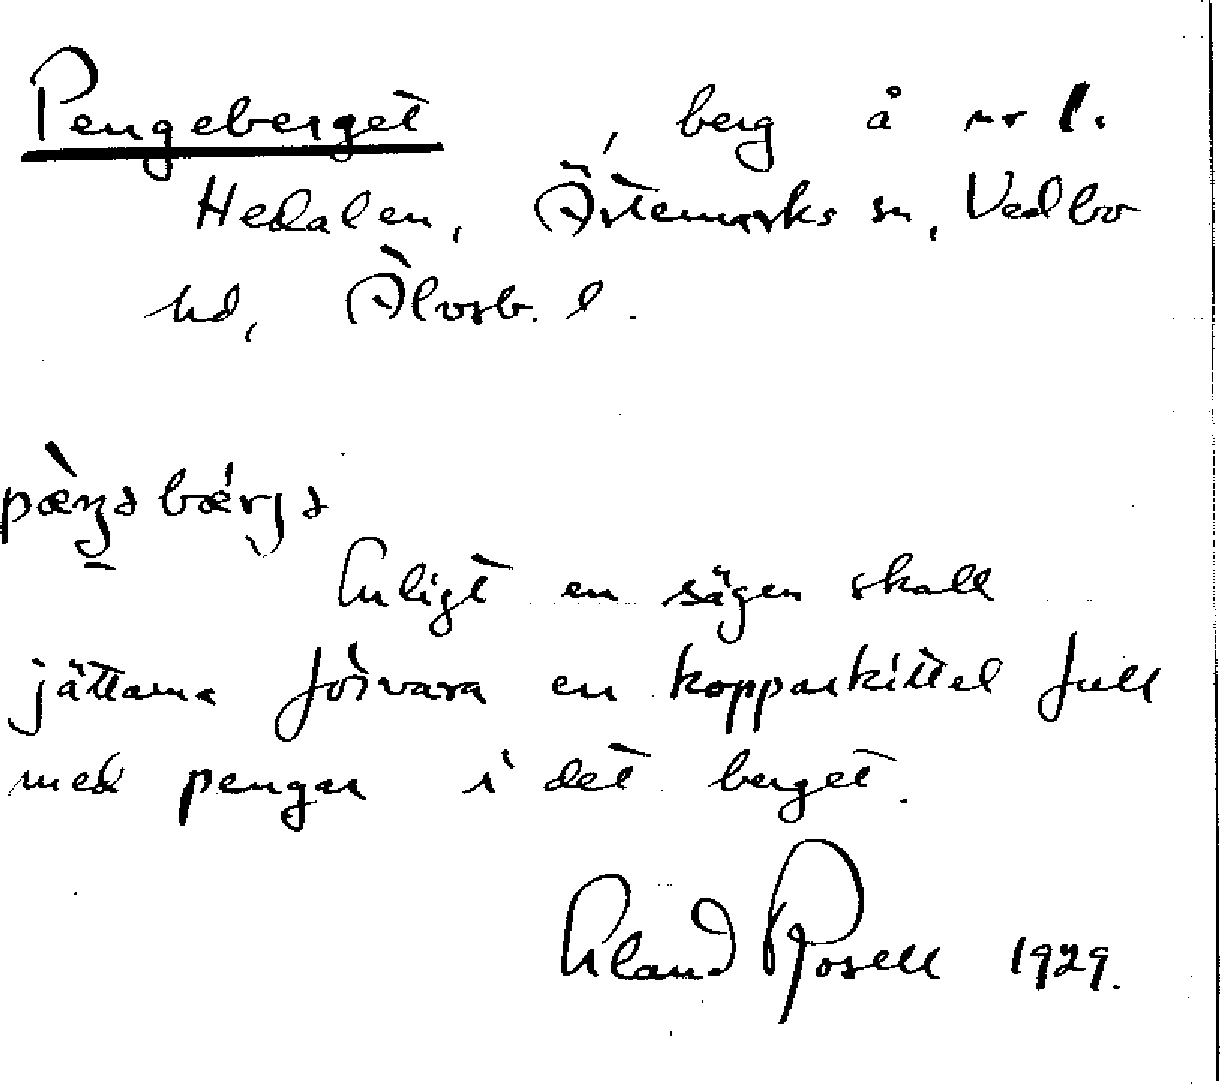 Pengeberget, berg å nr 1.
Hedalen, Ärtemarks sn, Vedbo
hd, Älvsb. l.
pæ̀ŋəbǽrjə
Enligt en sägen skall
jättarna förvara en kopparkittel full
med pengar i det berget.
Erland Rosell 1929.